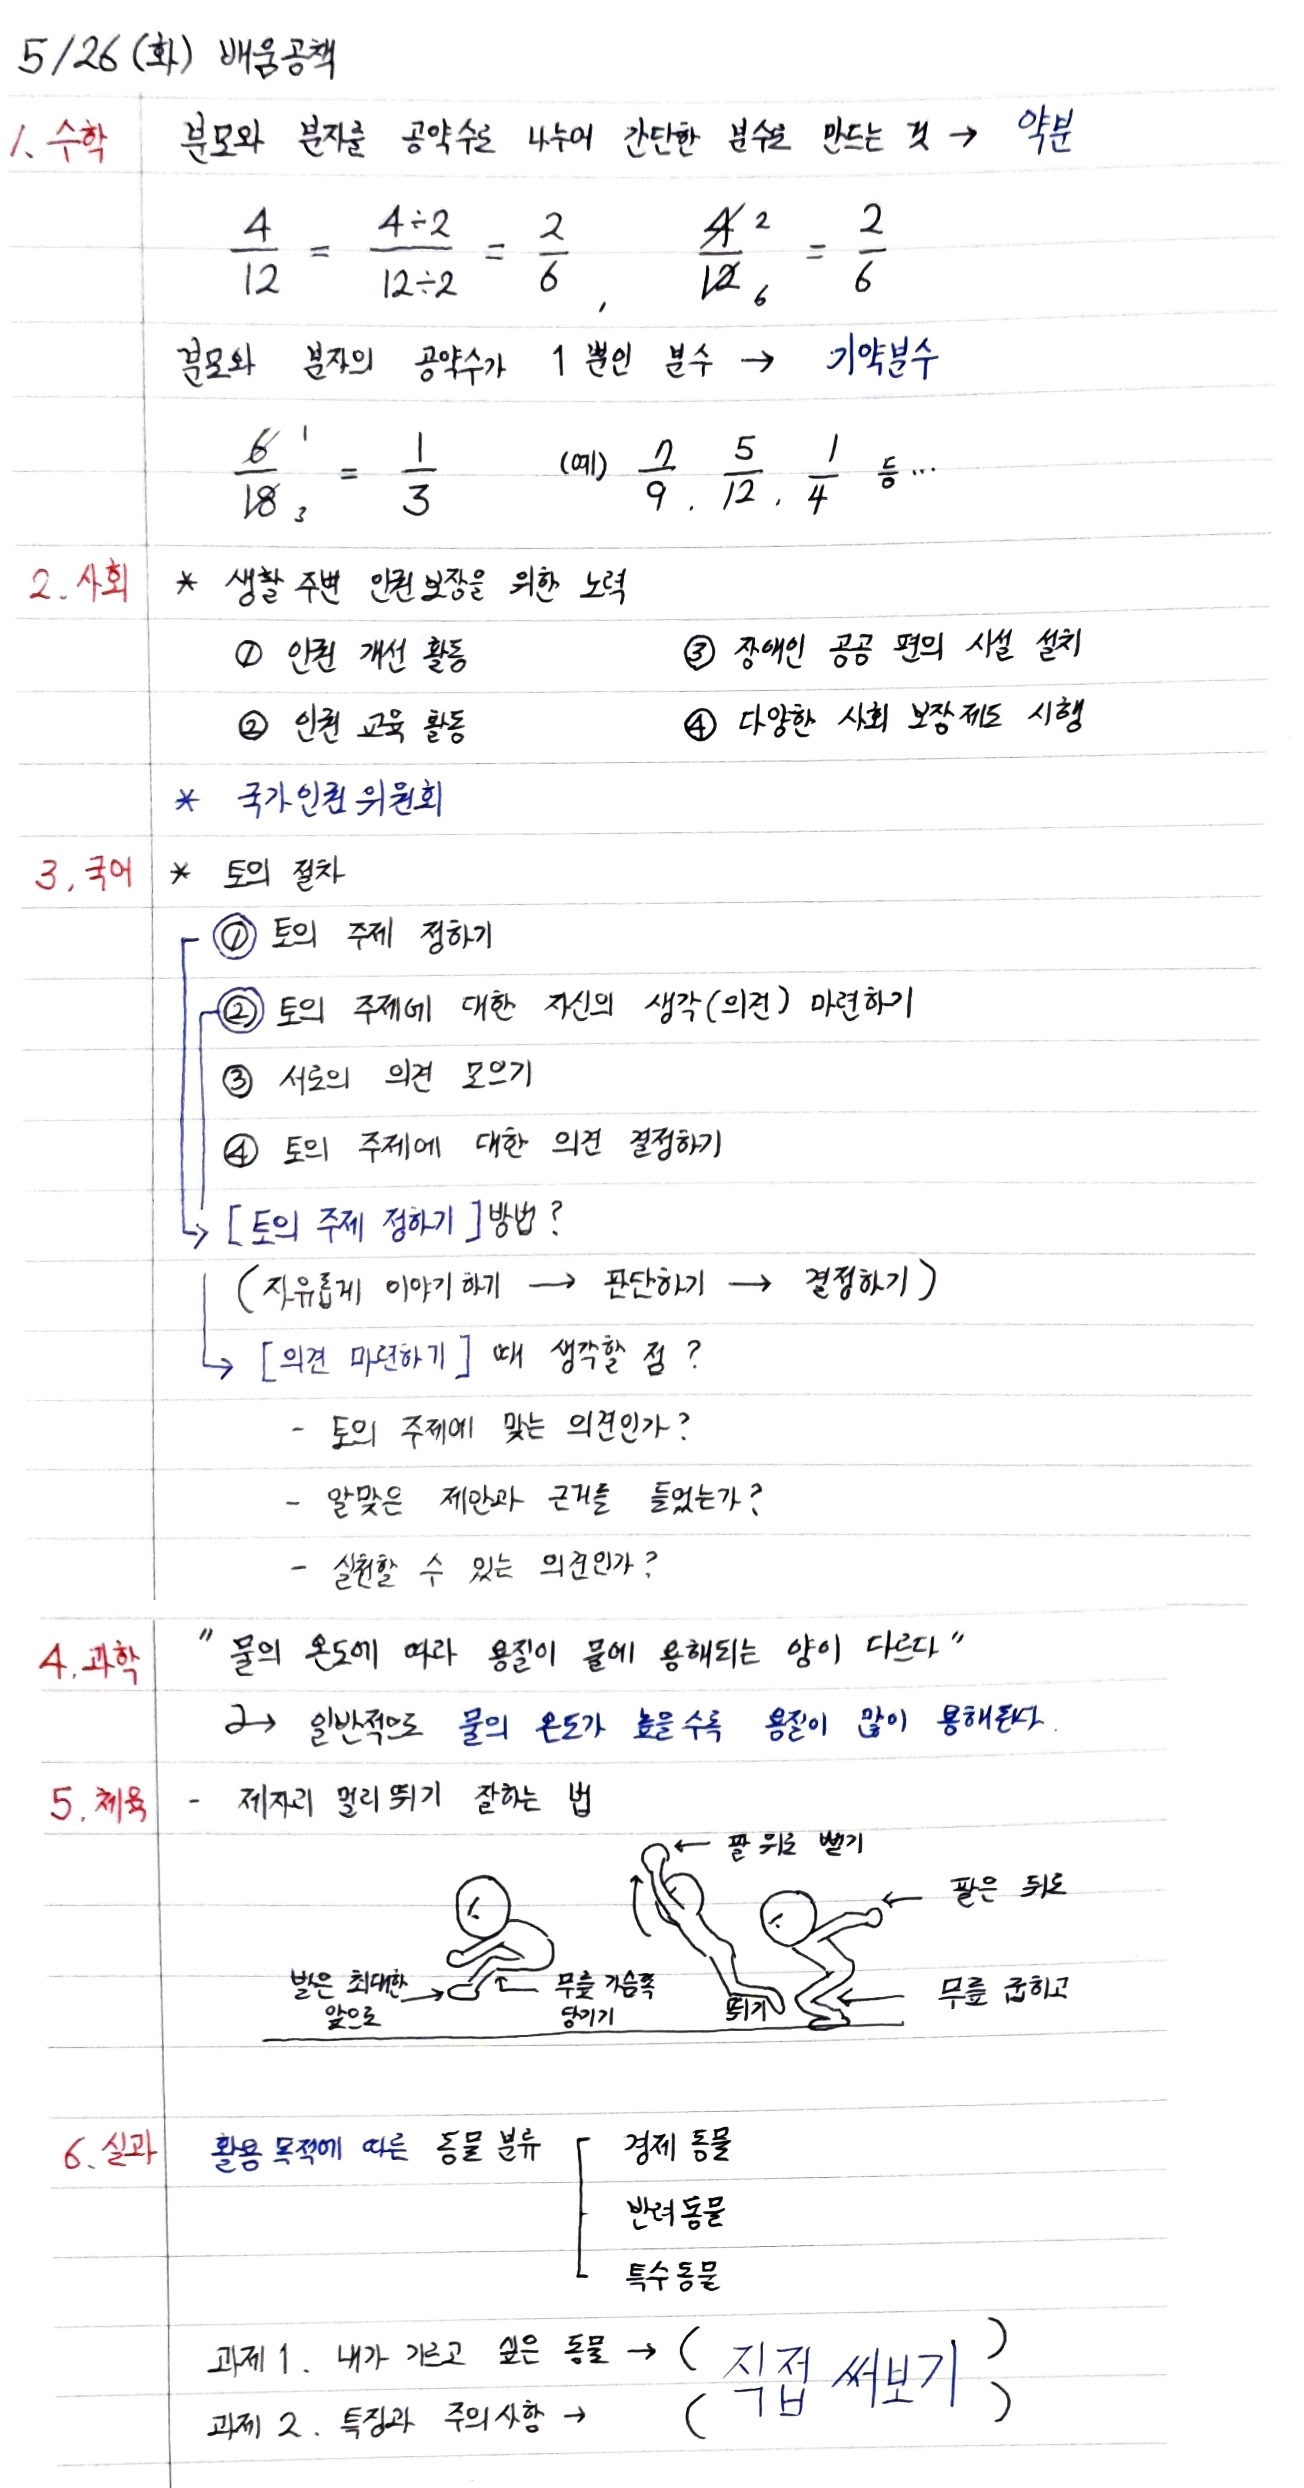 5/26 (화) 배움공책
1. 수학 분모와 분자를 공약수로 나누어 간단한 분수로 만드는 것 → 약분
4/12 = 4÷2/12÷2 = 2/6 , 4/12 2 6 = 2/6
분모와 분자의 공약수가 1 뿐인 분수 → 기약분수
6/18 1 3 = 1/3 (예) 7/9 . 5/12 . 1/4 등 ...
2. 사회 * 생활 주변 인권보장을 위한 노력
① 인권 개선 활동 ③ 장애인 공공 편의 시설 설치
② 인권 교육 활동 ④ 다양한 사회 보장제도 시행
* 국가인권위원회
3. 국어 * 토의 절차
① 토의 주제 정하기
② 토의 주제에 대한 자신의 생각(의견) 마련하기
③ 서로의 의견 모으기
④ 토의 주제에 대한 의견 결정하기
→ [토의 주제 정하기] 방법?
(자유롭게 이야기하기 → 판단하기 → 결정하기)
→ [의견 마련하기] 때 생각할 점?
- 토의 주제에 맞는 의견인가?
- 알맞은 제안과 근거를 들었는가?
- 실천할 수 있는 의견인가?
4. 과학 " 물의 온도에 따라 용질이 물에 용해되는 양이 다르다 "
→ 일반적으로 물의 온도가 높을수록 용질이 많이 용해된다.
5. 체육 - 제자리 멀리뛰기 잘하는 법
← 팔 위로 뻗기
← 팔은 뒤로
발은 최대한 앞으로 →
← 무릎 가슴쪽 당기기
뛰기
← 무릎 굽히고
6. 실과 활용 목적에 따른 동물 분류 경제 동물
반려동물
특수동물
과제 1. 내가 기르고 싶은 동물 → ( 직접 써보기 )
과제 2. 특징과 주의사항 → ( )